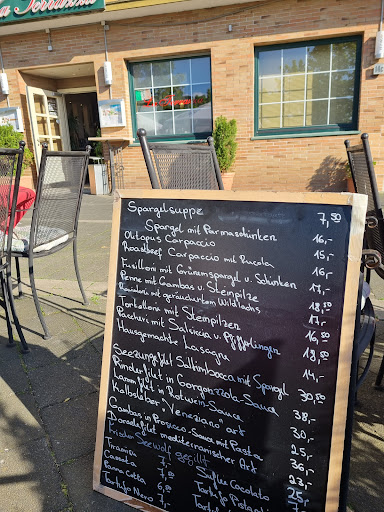 Spargelsuppe 7,50
Spargel mit Parmaschinken 16,-
Oktopus Carpaccio 15,-
Roastbeef Carpaccio mit Rucola 16,-
Fusilloni mit Grünemspargel u. Schinken 17,-
Penne mit Gambas u. Steinpilze 18,50
mit geräuchertem Wildlachs 17,-
Tortelloni mit Steinpilzen 16,50
Paccheri mit Salsiccia u. Pfifferlingen 19,50
Hausgemachte Lasagne 14,-
Seezungefilet Saltimbocca mit Spargel 30,50
Rinderfilet in Gorgonzola-Sauce 38,-
Lammfilet in Rotwein-Sauce 30,-
Kalbsleber "Veneziano" art 25,-
Gambas in Prosecco-Sauce mit Pasta 36,-
Doradefilet mediterranischer Art 23,-
Frische Seewolf gegrillt 25,-
Tiramisu 7,-
Cassata
Panna Cotta 6,
Tartufo Nero 7,-
Suflee Cocolato
Tartufo
Tartufo